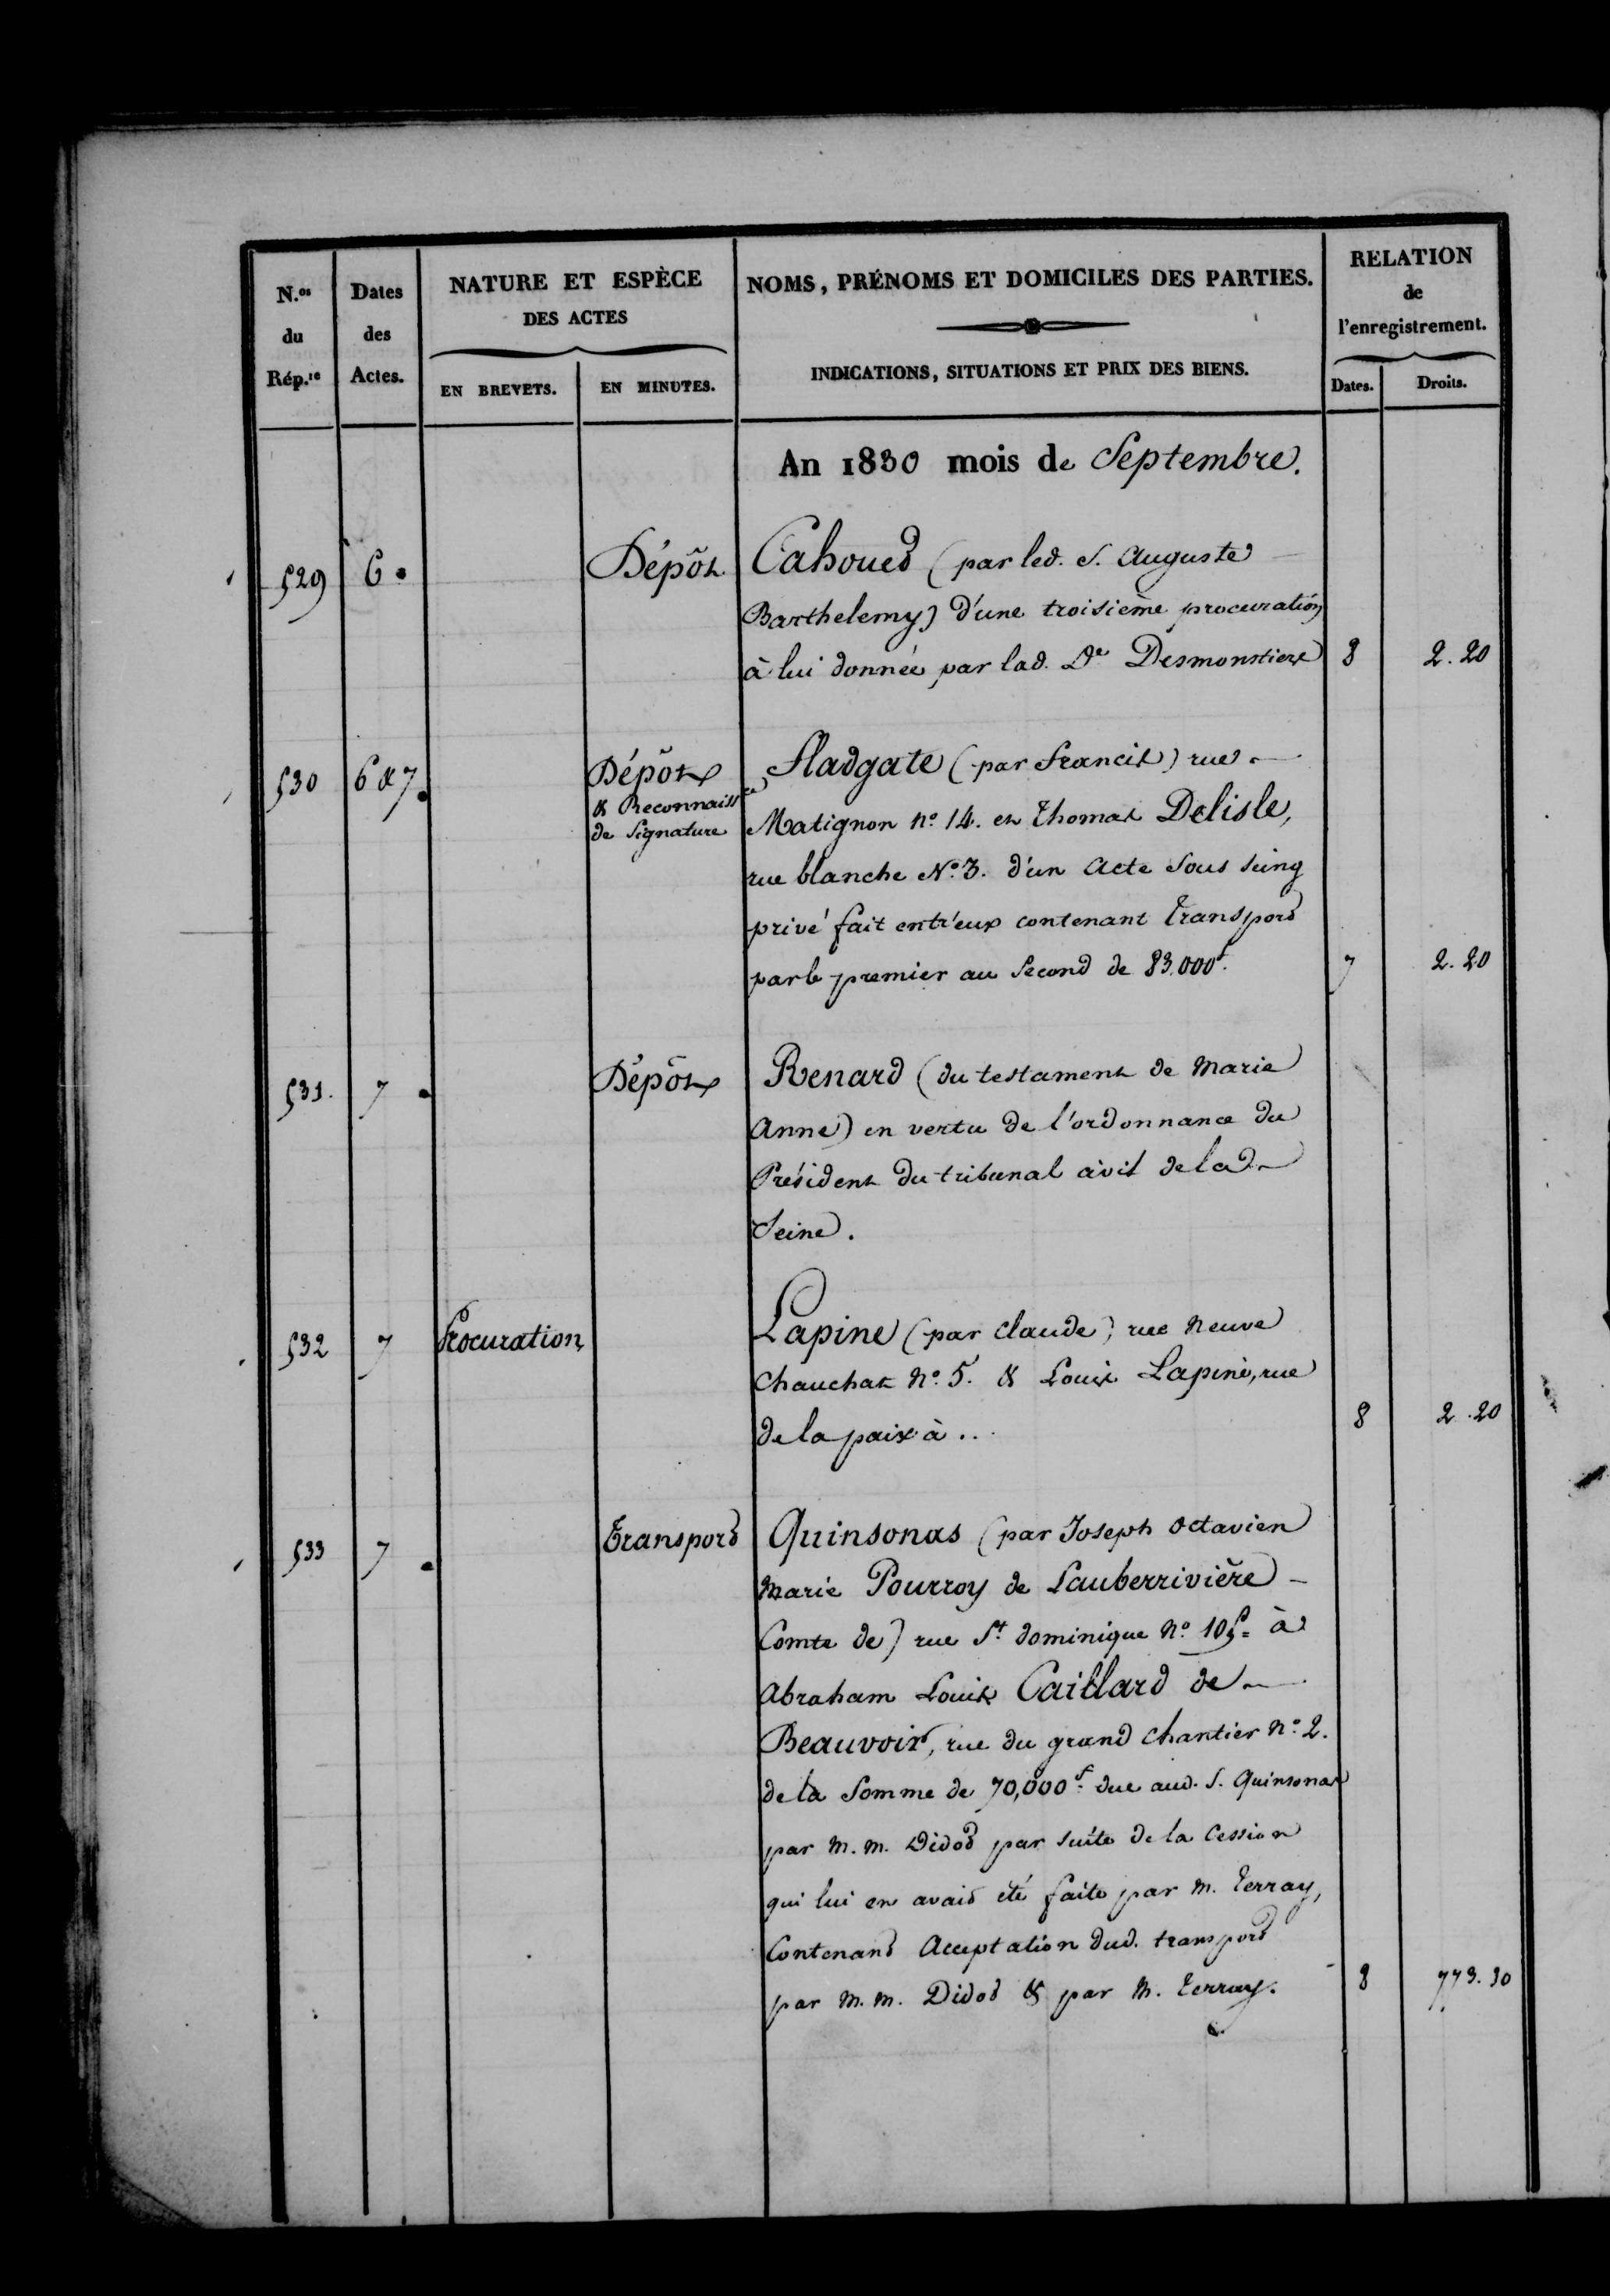 N.os du Rép.re
Dates des Actes.
NATURE ET ESPÈCE DES ACTES
EN BREVETS.
EN MINUTES.
NOMS, PRÉNOMS ET DOMICILES DES PARTIES.
INDICATIONS, SITUATIONS ET PRIX DES BIENS.
RELATION de l'enregistrement.
Dates.
Droits.
An 1830 mois de Septembre.
529 6. Dépôt Cahouet (par led. S. Auguste
Barthelemy) d'une troisième procuration
à lui donnée par lad. De Desmonstiers 8 2.20
530 6 & 7. Dépôt Fladgate (par Francis) rue
& Reconnaissce
de Signature
Matignon no. 14. et Thomas Delisle,
rue blanche No. 3. d'un Acte sous seing
privé fait entr'eux contenant Transport
par le premier au second de 83.000f. 7 2.20
531. 7. Dépôt Renard (du testament de Marie
Anne) en vertu de l'ordonnance du
Président du tribunal civil de la
Seine.
532 7 Procuration Lapine (par Claude) rue Neuve
Chauchat No. 5. & Louis Lapine, rue
de la paix à .. 8 2.20
533 7. Transport Quinsonas (par Joseph Octavien
Marie Pourroy de Lauberrivière
Comte de) rue St. dominique No. 105. à
Abraham Louis Caillard de
Beauvoir, rue du grand Chantier No. 2.
de la Somme de 70,000f. due aud. S. Quinsonas
par M. M. Didot par suite de la Cession
qui lui en avait été faite par M. Terray,
Contenant Acceptation dud. transport
par M. M. Didot & par M. Terray. 8 773.30